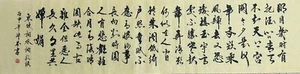 明月幾時有
把酒問青天
不知天上宮
闕今夕是何
年我欲乘風
歸去又恐瓊
樓玉宇高處
不勝寒起舞
弄清影何
似在人間
轉朱閣低綺
戶照無眠不
應有恨何事
長向別時圓
人有悲歡離
合月有陰晴
圓缺此事古
難全但願人
長久千里共
嬋娟